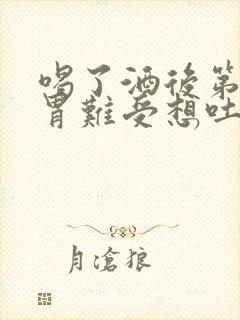 喝了酒後第
胃難受想吐
月滄狼